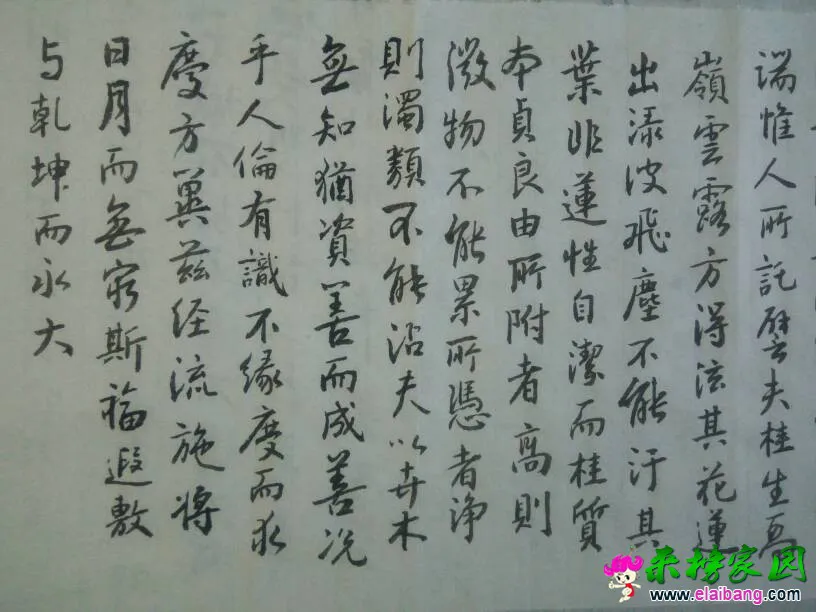 端惟人所託譬夫桂生高
嶺雲露方得泫其花蓮
出渌波飛塵不能汙其
葉非蓮性自潔而桂質
本貞良由所附者高則
微物不能累所憑者浄
則濁類不能沾夫以卉木
無知猶資善而成善况
乎人倫有識不緣慶而求
慶方冀茲经流施將
日月而無窮斯福遐敷
与乾坤而永大
来榜家园
www.elaibang.com